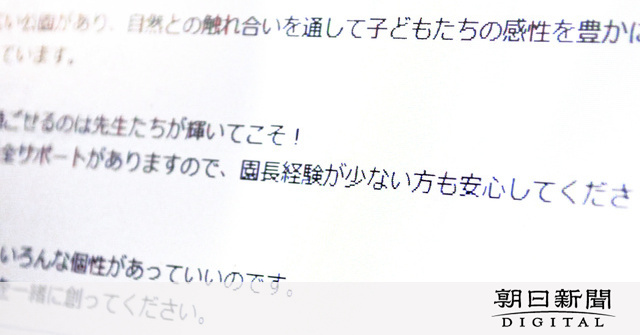 公園があり、自然との触れ合いを通して子どもたちの感性を豊かに
ています。
ごせるのは先生たちが輝いてこそ！
全サポートがありますので、園長経験が少ない方も安心してくださ
いろんな個性があっていいのです。
一緒に創ってください。
朝日新聞
DIGITAL